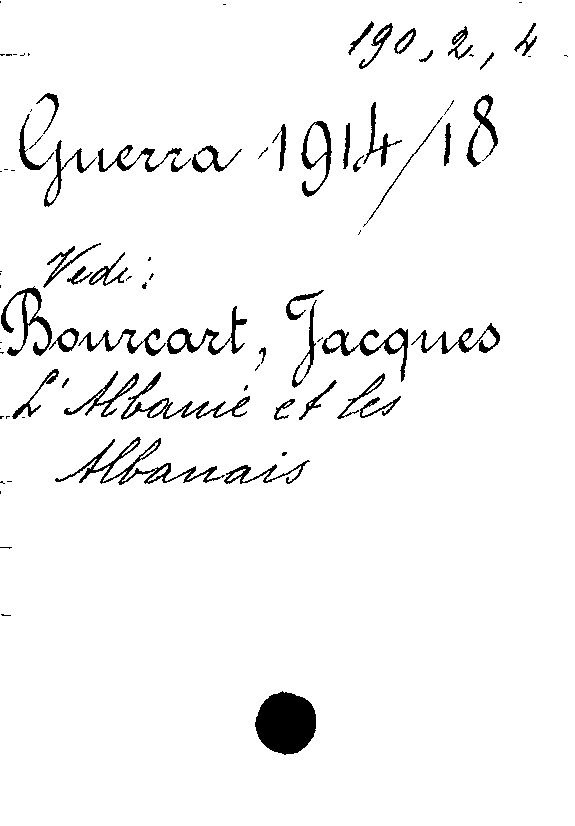 190, 2, 4
Guerra 1914/18
Vedi:
Bourcart, Jacques
L'Albanie et les
Albanais